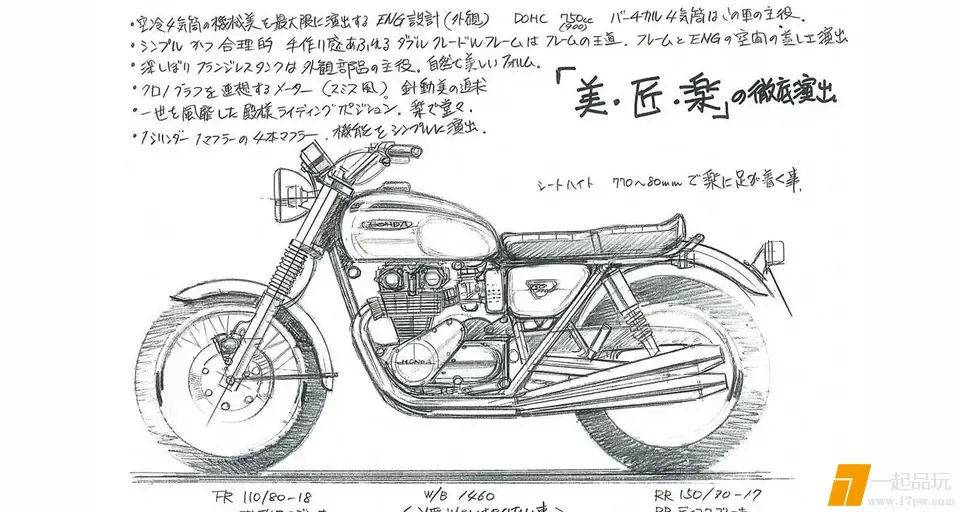 ・空冷4気筒の機械美を最大限に演出する ENG設計(外観) DOHC 750cc (900) バーチカル4気筒はこの車の主役.
・シンプルかつ合理的 手作り感あふれるダブルクレードルWフレームはフレームの王道. フレームとENGの空間の美しさ演出
・深しぼりフランジレスタンクは外観部品の主役. 自然で美しいフォルム.
・クロノグラフを連想するメーター(スミス風)。針動美の追求
・一世を風靡した殿様ライディングポジション. 楽で堂々.
・1シリンダー1マフラーの4本マフラー. 機能をシンプルに演出.
「美・匠・楽」の徹底演出
シートハイト 770~80mmで楽に足が着く事.
HONDA
HONDA
FR 110/80-18
W/B 1460
RR 150/70-17
一起品玩
www.17pw.com